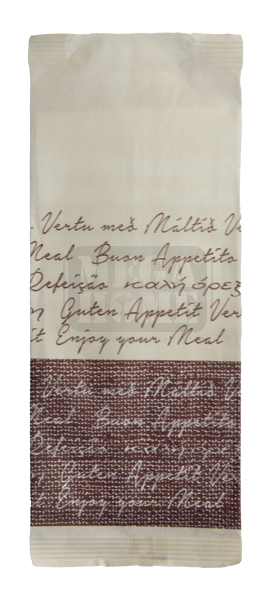 Vertu með Máltíð Ve
Meal Buon Appetito
Refeição καλή όρεξ
Guten Appetit Ver
it Enjoy your Meal
Vertu með Máltíð V
Meal Buon Appetito
Refeição καλή όρε
Guten Appetit Ver
it Enjoy your Meal